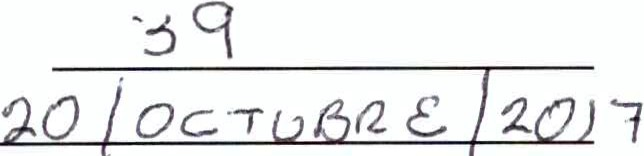 39
20/OCTUBRE/2017